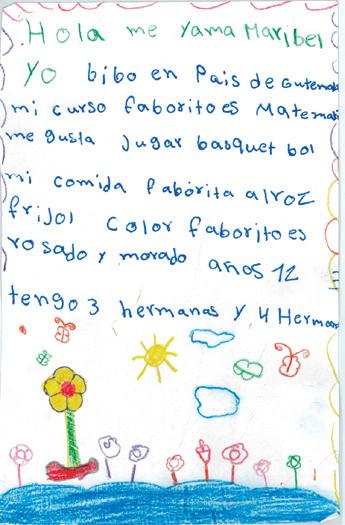 Hola me yama Maribel
Yo bibo en Pais de Gutema
mi curso faborito es Matemati
me gusta jugar basquet bol
mi comida faborita alroz
frijol color faborito es
rosado y morado anos 12
tengo 3 hermanas y 4 Herman